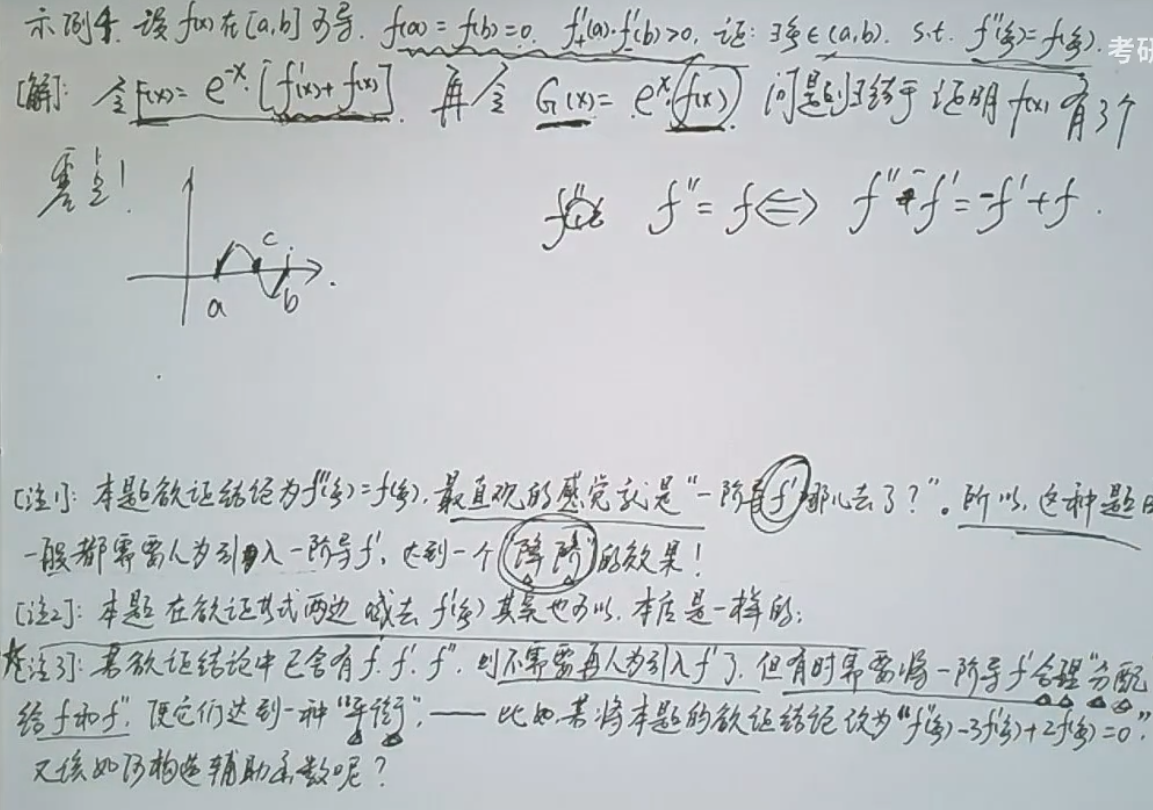 示例4. 设f(x)在[a,b]可导. f(a)=f(b)=0. f'₊(a)·f'₋(b)>0, 证: ∃ξ∈(a,b). s.t. f''(ξ)=f(ξ).
考研
[解]: 令F(x)= e⁻ˣ·[f'(x)+f(x)]. 再令 G(x)= eˣ·f(x) 问题归结于证明f(x)有3个
零点!
f'' = f ⟺ f''-f'=-f'+f.
c
a b
[注1]: 本题欲证结论为f''(ξ)=f(ξ), 最直观的感觉就是"一阶导f'哪儿去了?"。所以, 这种题目
一般都需要人为引入一阶导f', 达到一个"降阶"的效果!
[注2]: 本题在欲证等式两边减去f'(ξ)其实也可以, 本质是一样的;
[注3]: 若欲证结论中已含有f.f'.f''. 则不需要再人为引入f'了. 但有时需要将一阶导f'合理"分配
给f和f'', 使它们达到一种"平衡". —— 比如, 若将本题的欲证结论改为"f''(ξ)-3f'(ξ)+2f(ξ)=0",
又该如何构造辅助函数呢?